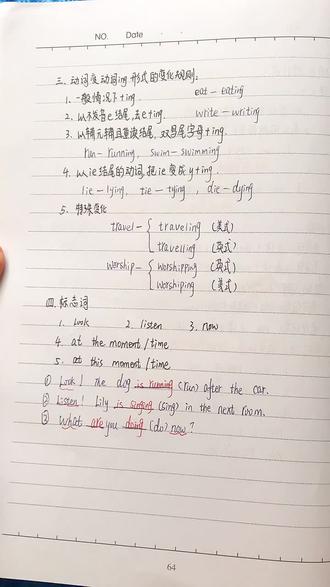 NO. Date
三、动词变动词ing形式的变化规则:
1. 一般情况下+ing. eat - eating
2. 以不发音e结尾,去e+ing. write - writing
3. 以辅元辅且重读结尾,双写尾字母+ing.
run - running, swim - swimming
4. 以ie结尾的动词,把ie变成y+ing.
lie - lying, tie - tying, die - dying
5. 特殊变化
travel - { traveling (美式)
travelling (英式)
worship - { worshipping (英式)
worshiping (美式)
四.标志词
1. look 2. listen 3. now
4. at the moment / time
5. at this moment / time
① Look! The dog is running (run) after the car.
② Listen! Lily is singing (sing) in the next room.
③ What are you doing (do) now?
64